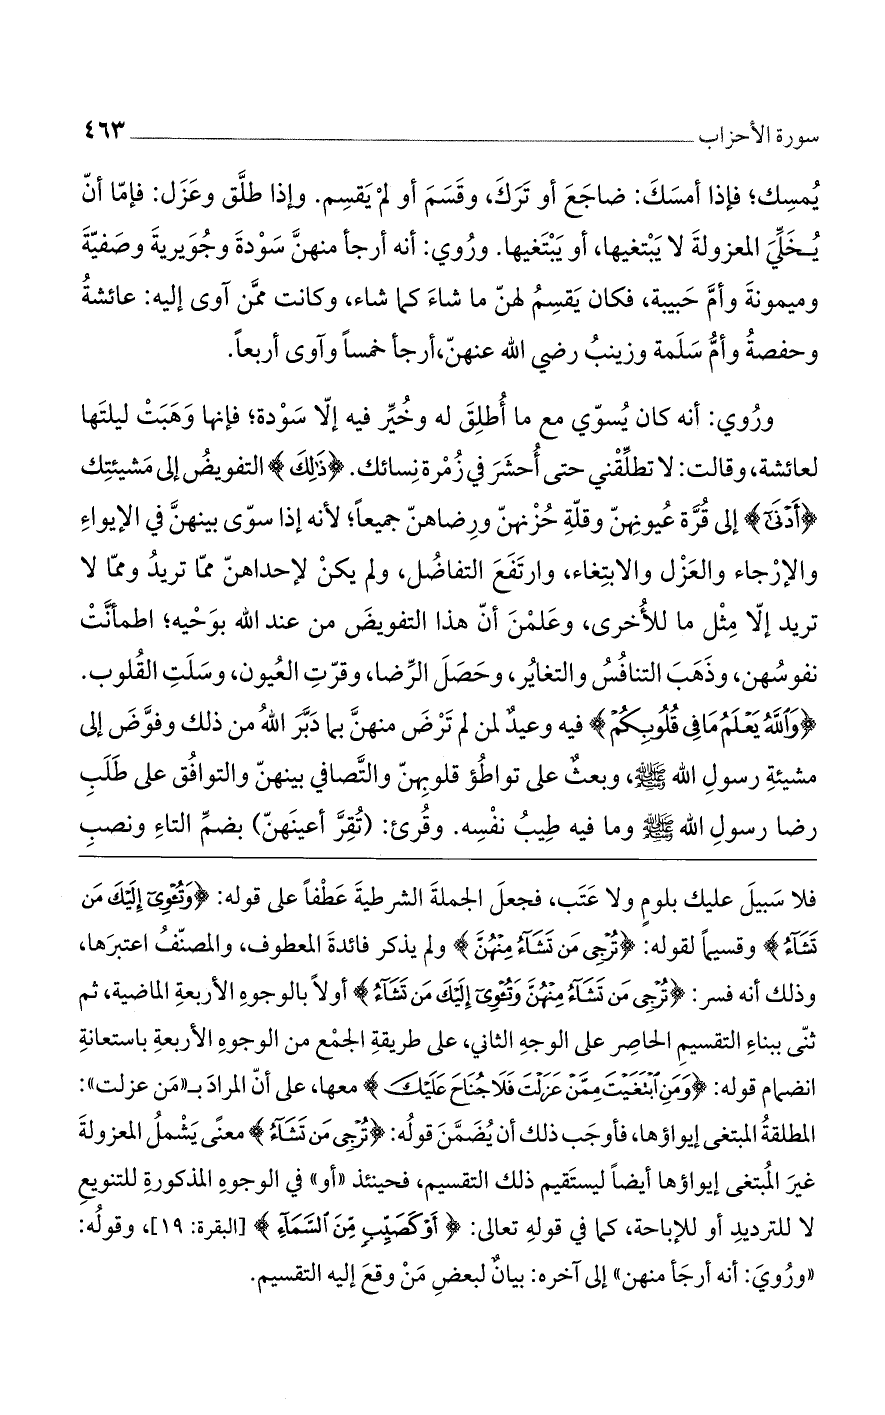 سورة الأحزاب ٤٦٣
يُمسِك؛ فإذا أمسَكَ: ضاجَعَ أو تَرَكَ، وقَسَمَ أو لمْ يَقسِم. وإذا طلَّق وعَزَل: فإمّا أنّ
يُـخَلِّيَ المعزولةَ لا يَبْتغيها، أو يَبْتَغيها. ورُوي: أنه أرجأ منهنَّ سَوْدةَ وجُوَيريةَ وصَفيّةَ
وميمونةَ وأمَّ حَبيبة، فكان يَقسِمُ لهنّ ما شاءَ كما شاء، وكانت ممَّن آوى إليه: عائشةُ
وحفصةُ وأمُّ سَلَمة وزينبُ رضي الله عنهنّ،أرجأ خمساً وآوى أربعاً.
ورُوي: أنه كان يُسوّي مع ما أُطلِقَ له وخُيِّر فيه إلّا سَوْدة؛ فإنها وَهَبَتْ ليلتَها
لعائشة، وقالت: لا تطلِّقْني حتى أُحشَرَ في زُمْرة نِسائك. ﴿ذَٰلِكَ﴾ التفويضُ إلى مَشيئتِك
﴿أَدْنَىٰٓ﴾ إلى قُرَّة عُيونِهنّ وقلّةِ حُزْنِهنّ ورِضاهنّ جميعاً؛ لأنه إذا سوّى بينهنَّ في الإيواءِ
والإرْجاء والعَزْل والابتغاء، وارتَفَعَ التفاضُل، ولم يكنْ لإحداهنّ ممّا تريدُ وممّا لا
تريد إلّا مِثْل ما للأُخرى، وعَلمْنَ أنّ هذا التفويضَ من عند الله بوَحْيه؛ اطمأنَّتْ
نفوسُهن، وذَهَبَ التنافُسُ والتغايُر، وحَصَلَ الرِّضا، وقرّتِ العُيون، وسَلَتِ القُلوب.
﴿وَٱللَّهُ يَعْلَمُ مَا فِى قُلُوبِكُمْ﴾ فيه وعيدٌ لمن لم تَرْضَ منهنَّ بما دَبَّرَ اللهُ من ذلك وفوَّضَ إلى
مشيئةِ رسولِ الله ﷺ، وبعثٌ على تواطُؤ قلوبِهنّ والتَّصافي بينهنّ والتوافُق على طَلَبِ
رضا رسولِ الله ﷺ وما فيه طِيبُ نفْسِه. وقُرئ: (تُقِرَّ أعينَهنّ) بضمِّ التاءِ ونصبِ
فلا سَبيلَ عليك بلومٍ ولا عَتَب، فجعلَ الجملةَ الشرطيةَ عَطْفاً على قوله: ﴿وَتُـْٔوِىٓ إِلَيْكَ مَن
تَشَآءُ﴾ وقسيماً لقوله: ﴿تُرْجِى مَن تَشَآءُ مِنْهُنَّ﴾ ولم يذكر فائدةَ المعطوف، والمصنّفُ اعتبرَها،
وذلك أنه فسر: ﴿تُرْجِى مَن تَشَآءُ مِنْهُنَّ وَتُـْٔوِىٓ إِلَيْكَ مَن تَشَآءُ﴾ أولاً بالوجوهِ الأربعةِ الماضية، ثم
ثنّى ببناءِ التقسيم الحاصِر على الوجهِ الثاني، على طريقةِ الجمْع من الوجوهِ الأربعةِ باستعانةِ
انضمام قوله: ﴿وَمَنِ ٱبْتَغَيْتَ مِمَّنْ عَزَلْتَ فَلَا جُنَاحَ عَلَيْكَ﴾ معها، على أنّ المرادَ بـ«مَن عزلت»:
المطلقةُ المبتغى إيواؤها، فأوجَب ذلك أن يُضمَّنَ قولُه: ﴿تُرْجِى مَن تَشَآءُ﴾ معنًى يَشْملُ المعزولةَ
غيرَ المُبتغى إيواؤها أيضاً ليستَقيم ذلك التقسيم، فحينئذ «أو» في الوجوهِ المذكورةِ للتنويعِ
لا للترديدِ أو للإباحة، كما في قولهِ تعالى: ﴿أَوْ كَصَيِّبٍ مِّنَ ٱلسَّمَآءِ﴾ [البقرة: ١٩]، وقولُه:
«ورُويَ: أنه أرجَأ منهن» إلى آخره: بيانٌ لبعضِ مَنْ وقعَ إليه التقسيم.